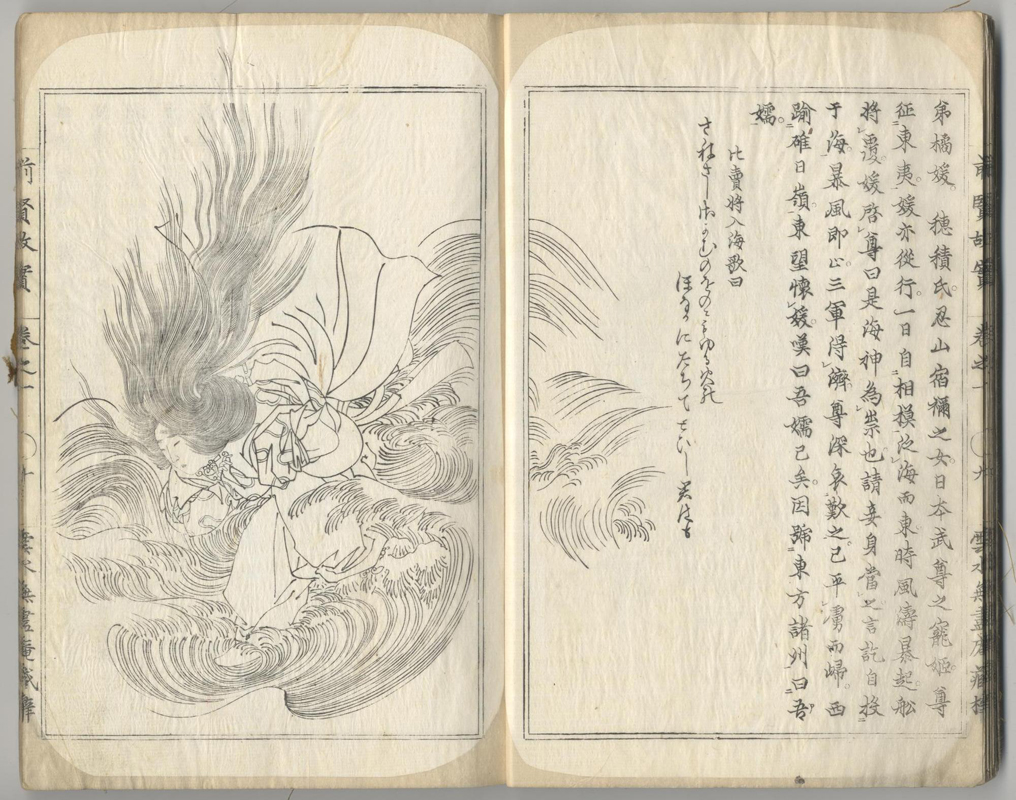 弟橘媛 穂積氏忍山宿禰之女日本武尊之寵姫尊
征東夷媛亦從行一日自相模泛海而東時風濤暴起舩
将覆媛啓尊曰是海神為祟也請妾身當之言訖自投
于海暴風即止三軍得濟尊深哀歎之已平虜而帰西
踰碓日嶺東望懐媛嘆曰吾嬬已矣因號東方諸州曰吾
嬬
比賣将入海歌曰
さねさし
ほなかにたちてとひし
前賢故實 卷之一 ○九
前賢故實 卷之一 ○十